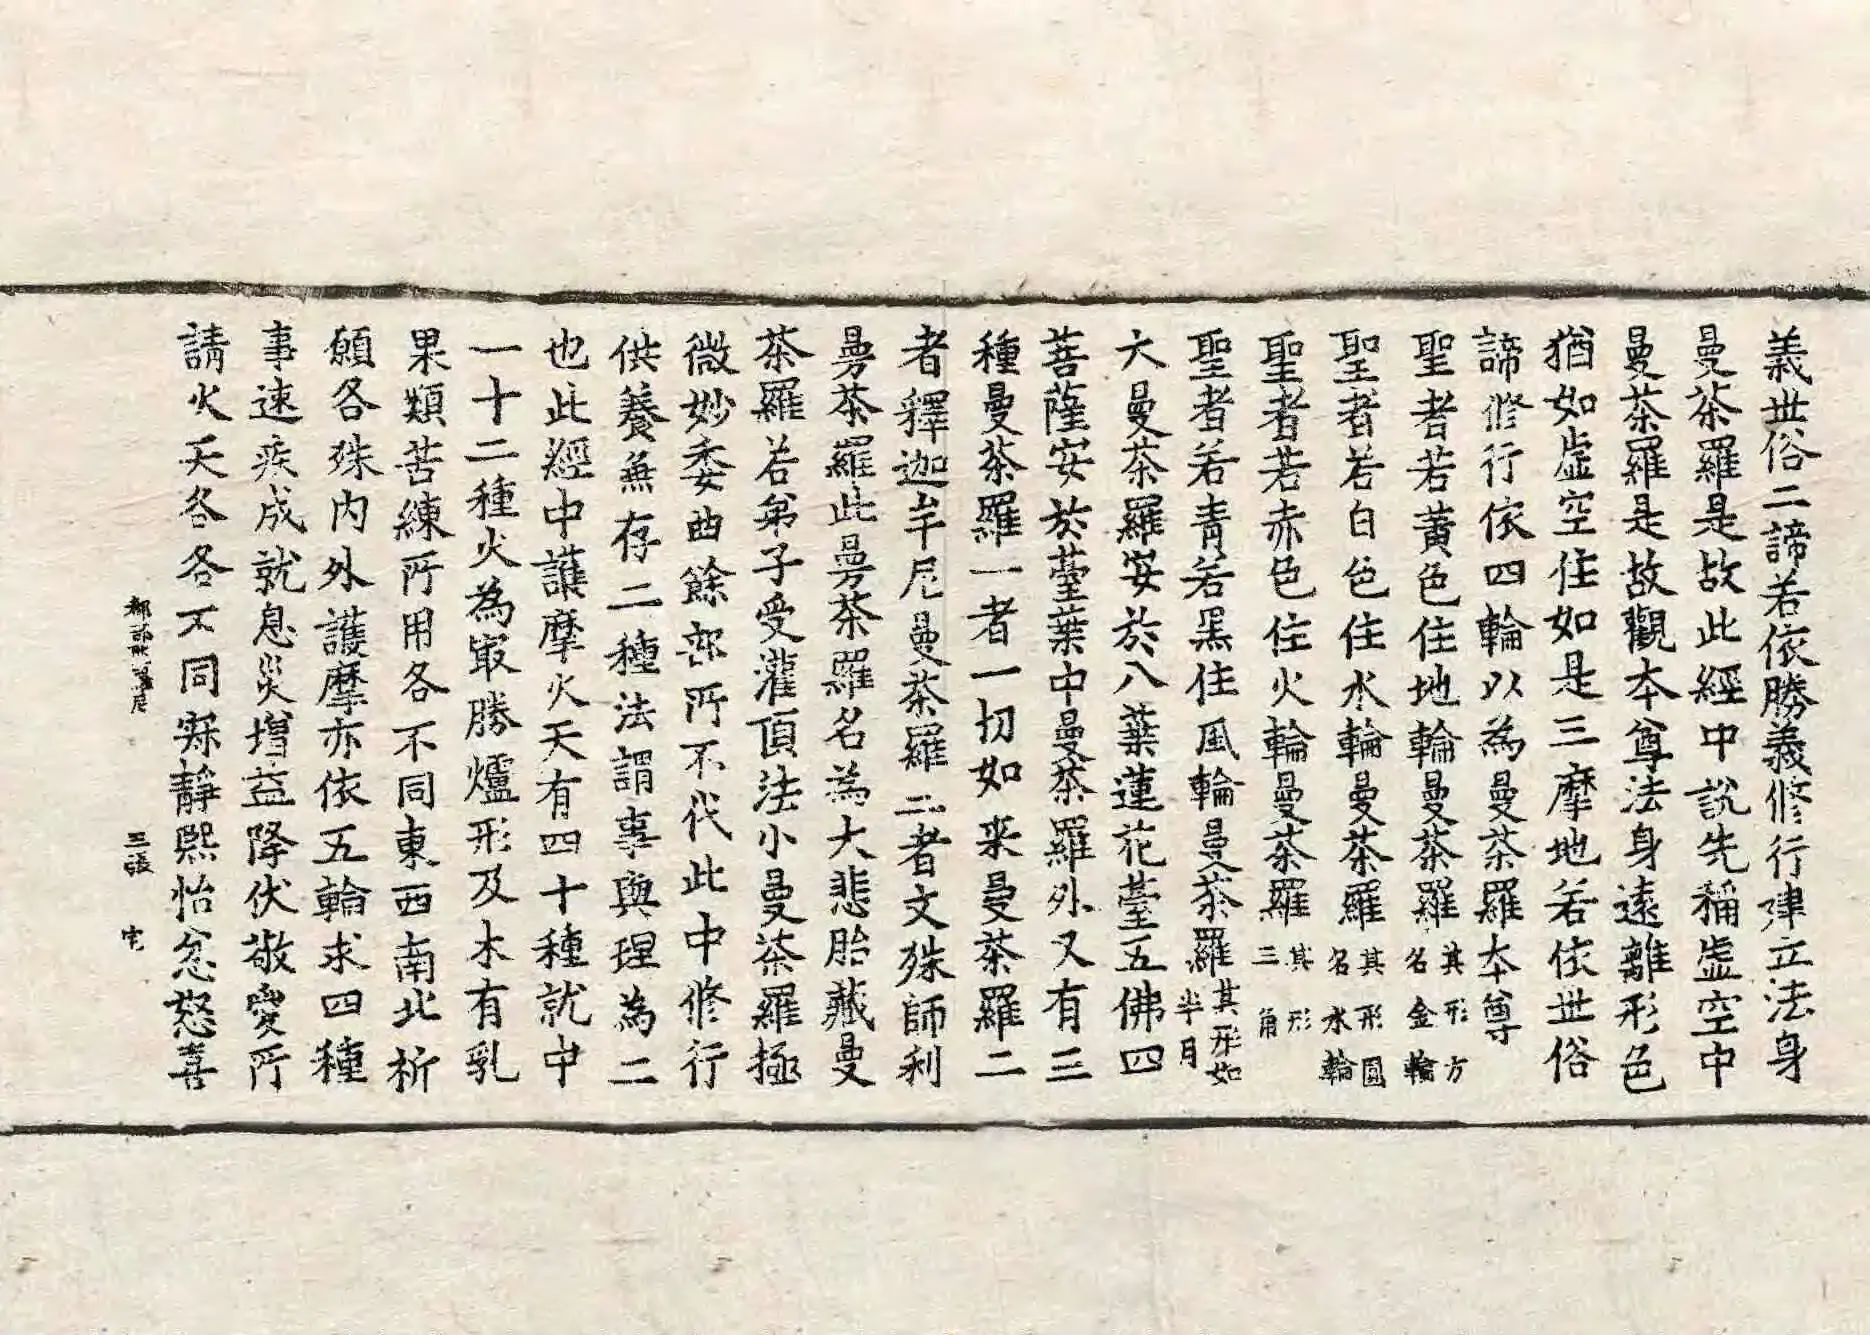 義世俗二諦若依勝義修行建立法身
曼茶羅是故此經中說先稱虛空中
曼茶羅是故觀本尊法身遠離形色
猶如虛空住如是三摩地若依世俗
諦修行依四輪以為曼茶羅本尊
聖者若黃色住地輪曼茶羅其形方名金輪
聖者若白色住水輪曼茶羅其形圓名水輪
聖者若赤色住火輪曼茶羅其形三角
聖者若青若黑住風輪曼茶羅其形如半月
大曼茶羅安於八葉蓮花臺五佛四
菩薩安於臺葉中曼茶羅外又有三
種曼茶羅一者一切如来曼茶羅二
者釋迦牟尼曼茶羅三者文殊師利
曼茶羅此曼茶羅名為大悲胎藏曼
茶羅若弟子受灌頂法小曼茶羅極
微妙委曲餘部所不代此中修行
供養無存二種法謂事與理為二
也此經中護摩火天有四十種就中
一十二種火為最勝爐形及木有乳
果類苦練所用各不同東西南北析
願各殊内外護摩亦依五輪求四種
事速疾成就息災增益降伏敬愛所
請火天各各不同寂靜熙怡忿怒喜
三張 宅